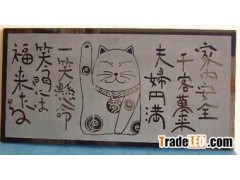 家内安全
千客萬来
夫婦円満
一笑懸命
笑う門には
福来たる
TradeTEO.com